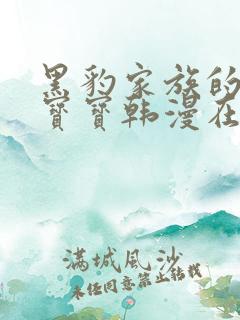 黑豹家族的
寶寶韩漫在
滿城風沙
未经同意禁止转载